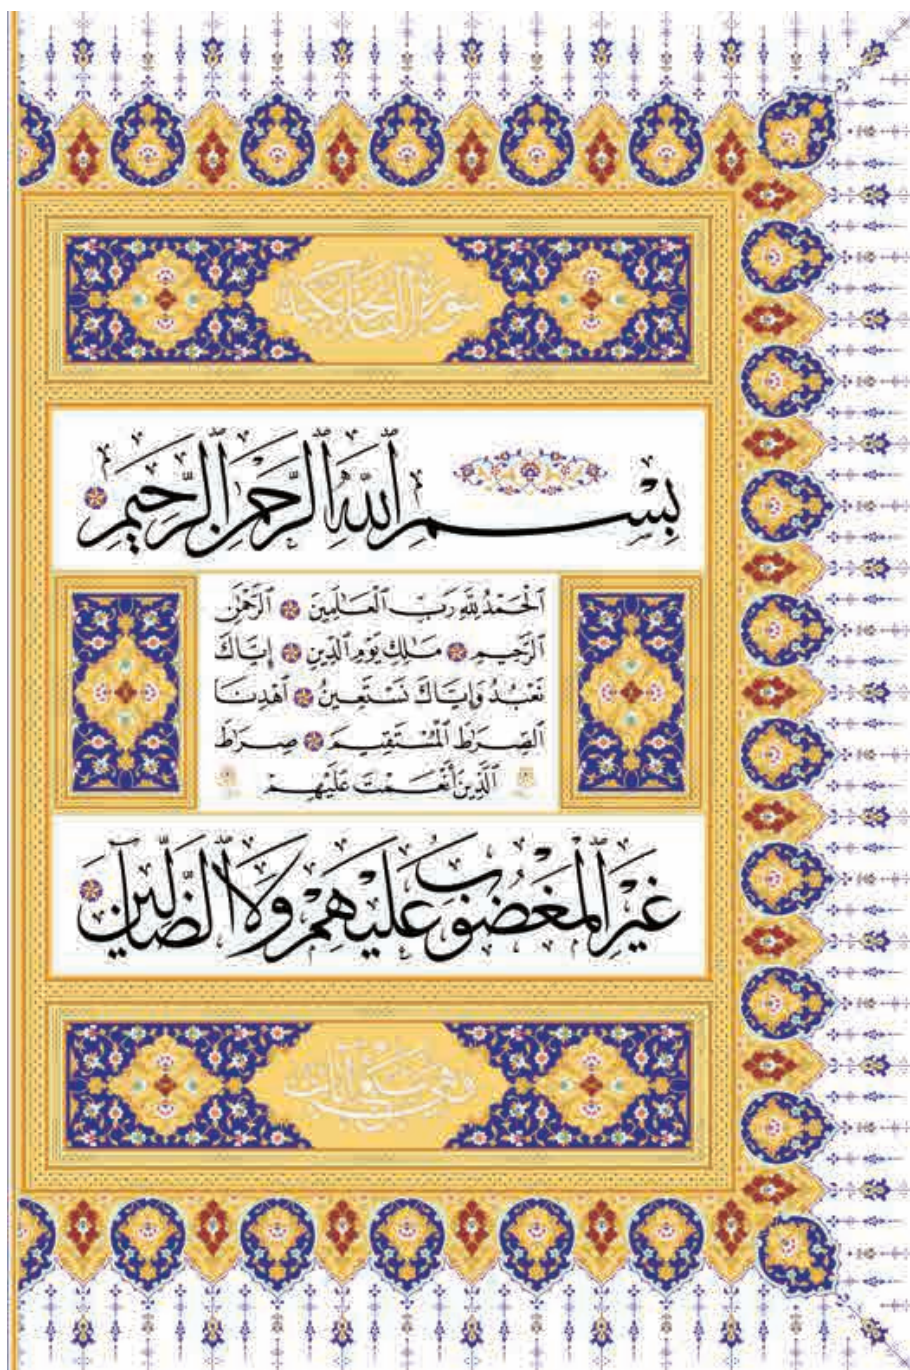 سورة الفاتحة مكية
بِسْمِ ٱللَّهِ ٱلرَّحْمَٰنِ ٱلرَّحِيمِ
ٱلْحَمْدُ لِلَّهِ رَبِّ ٱلْعَالَمِينَ ٱلرَّحْمَٰنِ
ٱلرَّحِيمِ مَالِكِ يَوْمِ ٱلدِّينِ إِيَّاكَ
نَعْبُدُ وَإِيَّاكَ نَسْتَعِينُ ٱهْدِنَا
ٱلصِّرَاطَ ٱلْمُسْتَقِيمَ صِرَاطَ
ٱلَّذِينَ أَنْعَمْتَ عَلَيْهِمْ
غَيْرِ ٱلْمَغْضُوبِ عَلَيْهِمْ وَلَا ٱلضَّآلِّينَ
وهي سبع آيات